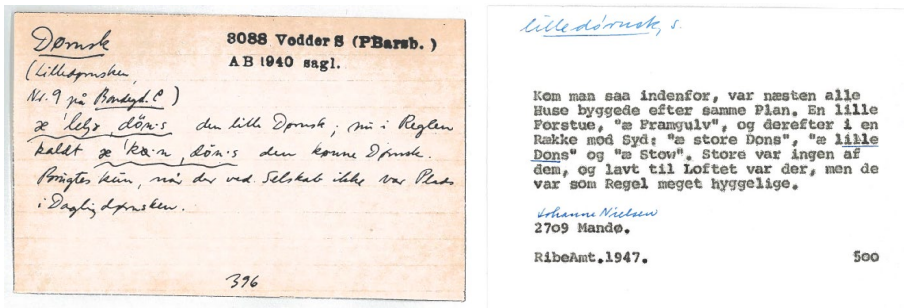 Dørnsk
3088 Vedder S (PBarsb. )
AB 1940 sagl.
(Lilledørnsken,
Nr. 9 på Bondegd. C)
den lille Dørnsk; nu i Reglen
kaldt den kønne Dørnsk.
Brugtes kun, når der ved Selskab ikke var Plads
i Dagligdørnsken.
396
lilledørnsk, s.
Kom man saa indenfor, var næsten alle
Huse byggede efter samme Plan. En lille
Forstue, "æ Framgulv", og derefter i en
Række mod Syd: "æ store Døns", "æ lille
Døns" og "æ Stow". Store var ingen af
dem, og lavt til Loftet var der, men de
var som Regel meget hyggelige.
Johanne Nielsen
2709 Mandø.
RibeAmt.1947.
500